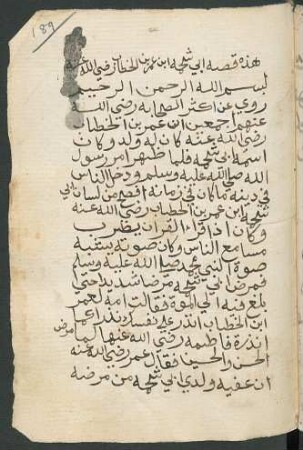 189
هذه قصه ابي شحمه ابن عمر بن الخطاب رضي الله عنه
بسم الله الرحمن الرحيم
روي عن اكثر الصحابه رضي الله
عنهم اجمعين ان عمر بن الخطاب
رضي الله عنه كان له ولد وكان
اسمه ابي شحمه فلما ظهر امر رسول
الله صلي الله عليه وسلم ودخل الناس
في دينه ما كان في زمانه افصح من لسان ابي
شحمه ابن عمر بن الخطاب رضي الله عنه
وكان اذا قرا القران يطرب
مسامع الناس وكان صوته يشبه
صوة النبي محمد صلا الله عليه وسلم
فمرض ابي شحمه مرضا شديدا حتي
بلغ فيه الي الموة فقالت امه لعمر
ابن الخطاب انذر علي نفسك نذرا كما
انذرة فاطمه رضي الله عنها لما مرض
الحسن والحسين فقال عمر رضي الله عنه
ان عفيه ولدي ابي شحمه من مرضه